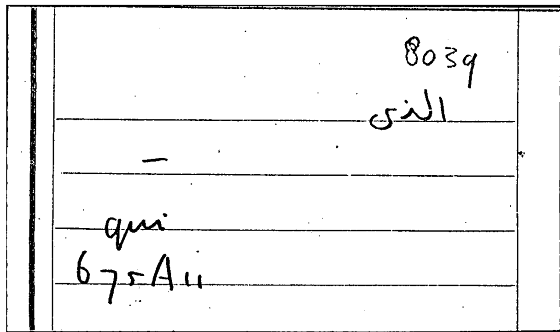 8039
الذى
—
qui
675A11